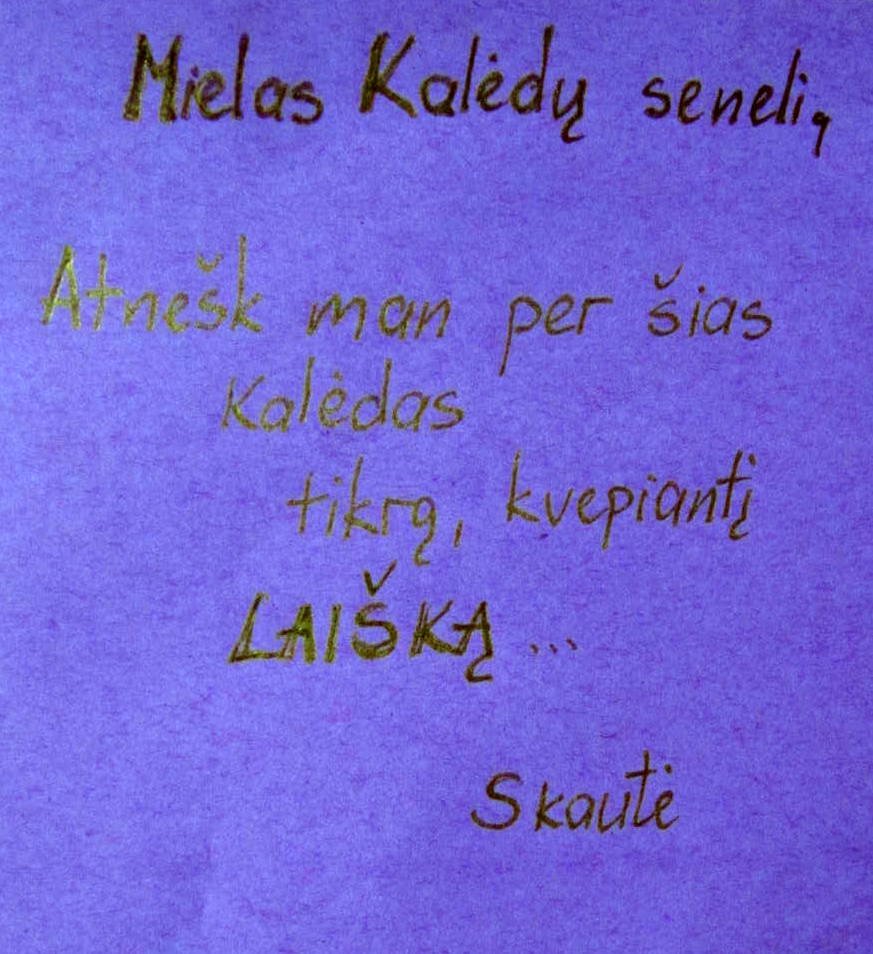 Mielas Kalėdų seneli,
Atnešk man per šias
Kalėdas
tikrą, kvepiantį
LAIŠKĄ ...
Skautė